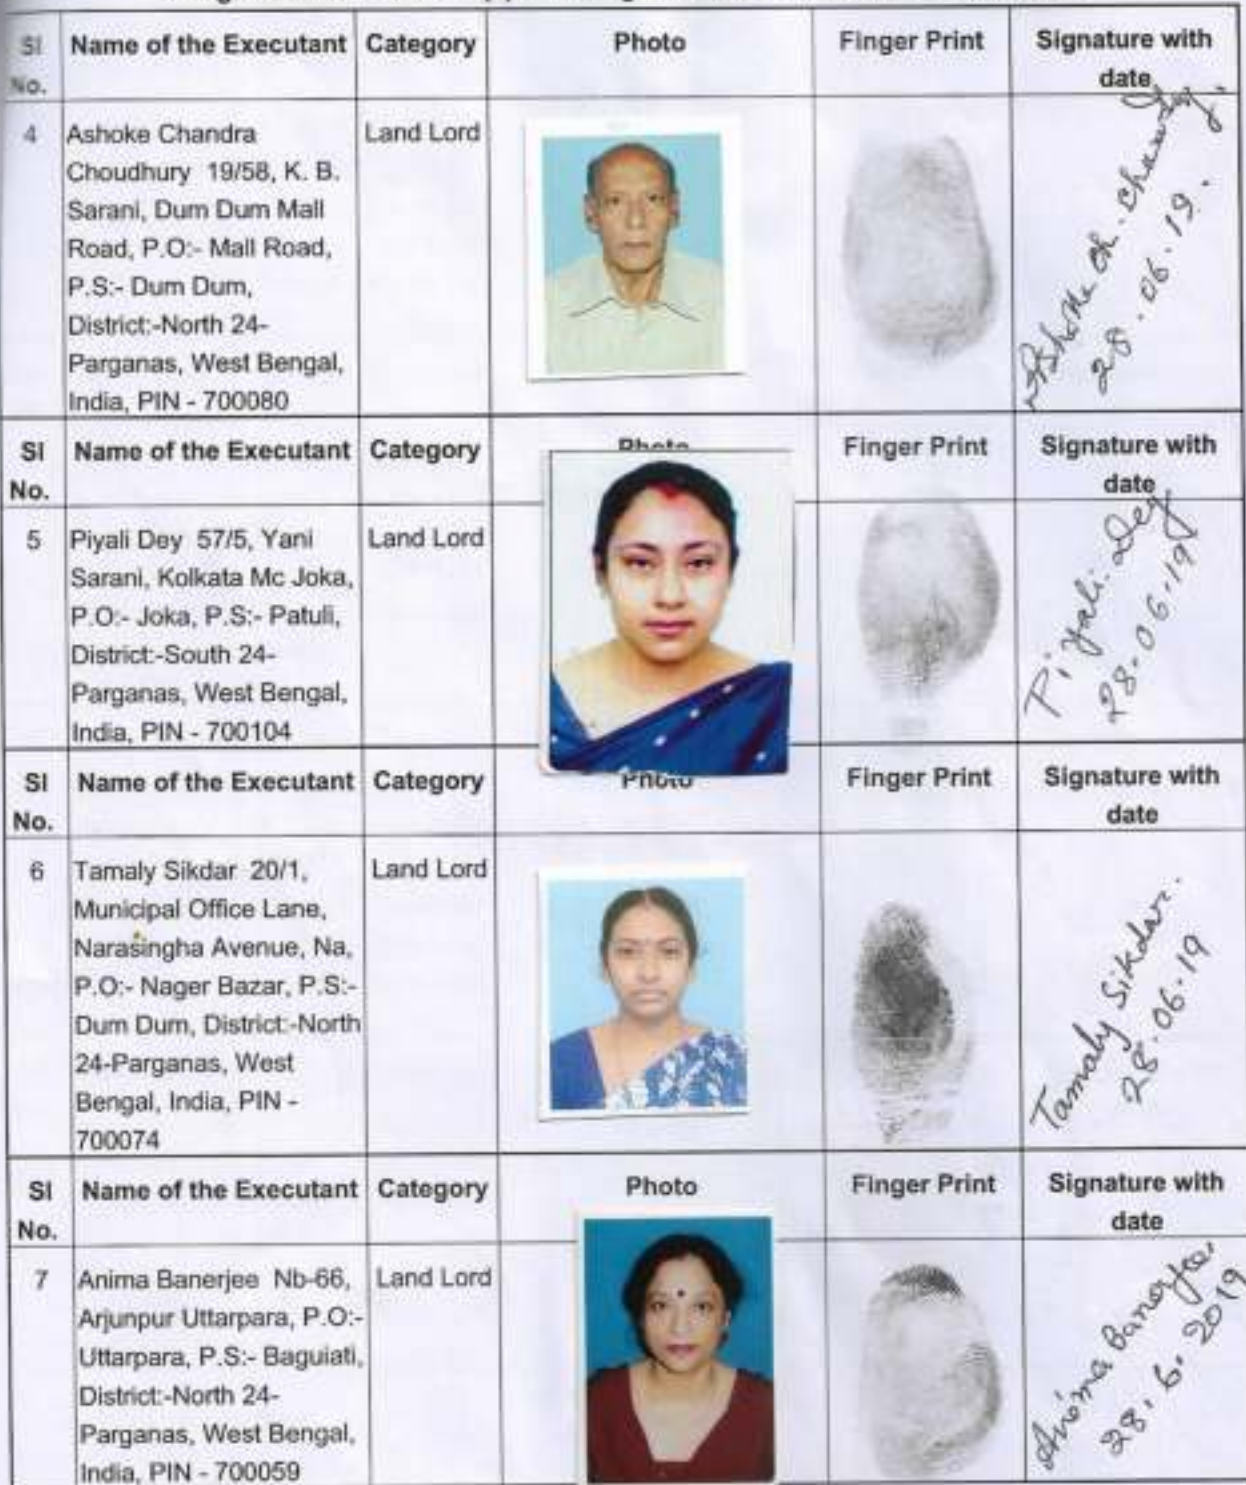 SI No. Name of the Executant Category Photo Finger Print Signature with date
4 Ashoke Chandra Land Lord
Choudhury 19/58, K. B.
Sarani, Dum Dum Mall
Road, P.O:- Mall Road,
P.S:- Dum Dum,
District:-North 24-
Parganas, West Bengal,
India, PIN - 700080
Ashoke Ch. Choudhury.
28.06.19.
SI No. Name of the Executant Category Photo Finger Print Signature with date
5 Piyali Dey 57/5, Yani Land Lord
Sarani, Kolkata Mc Joka,
P.O:- Joka, P.S:- Patuli,
District:-South 24-
Parganas, West Bengal,
India, PIN - 700104
Piyali Dey
28-06-19
SI No. Name of the Executant Category Photo Finger Print Signature with date
6 Tamaly Sikdar 20/1, Land Lord
Municipal Office Lane,
Narasingha Avenue, Na,
P.O:- Nager Bazar, P.S:-
Dum Dum, District:-North
24-Parganas, West
Bengal, India, PIN -
700074
Tamaly Sikdar.
28.06.19
SI No. Name of the Executant Category Photo Finger Print Signature with date
7 Anima Banerjee Nb-66, Land Lord
Arjunpur Uttarpara, P.O:-
Uttarpara, P.S:- Baguiati,
District:-North 24-
Parganas, West Bengal,
India, PIN - 700059
Anima Banerjee
28.6.2019